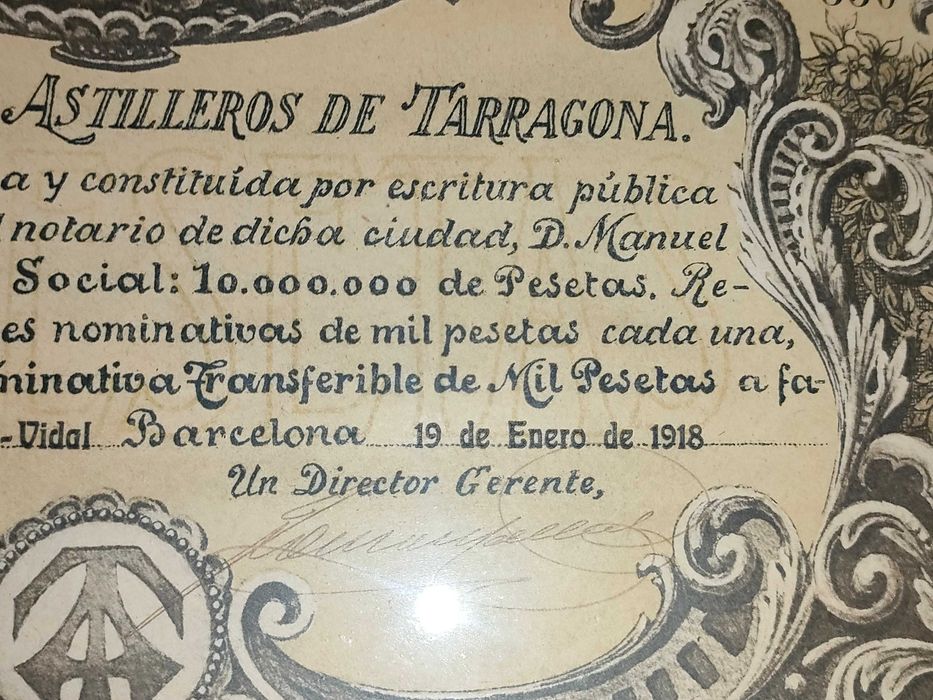 ASTILLEROS DE TARRAGONA.
a y constituída por escritura pública
l notario de dicha ciudad, D. Manuel
Social: 10.000.000 de Pesetas. Re-
es nominativas de mil pesetas cada una,
minativa Transferible de Mil Pesetas a fa-
-Vidal Barcelona 19 de Enero de 1918
Un Director Gerente,